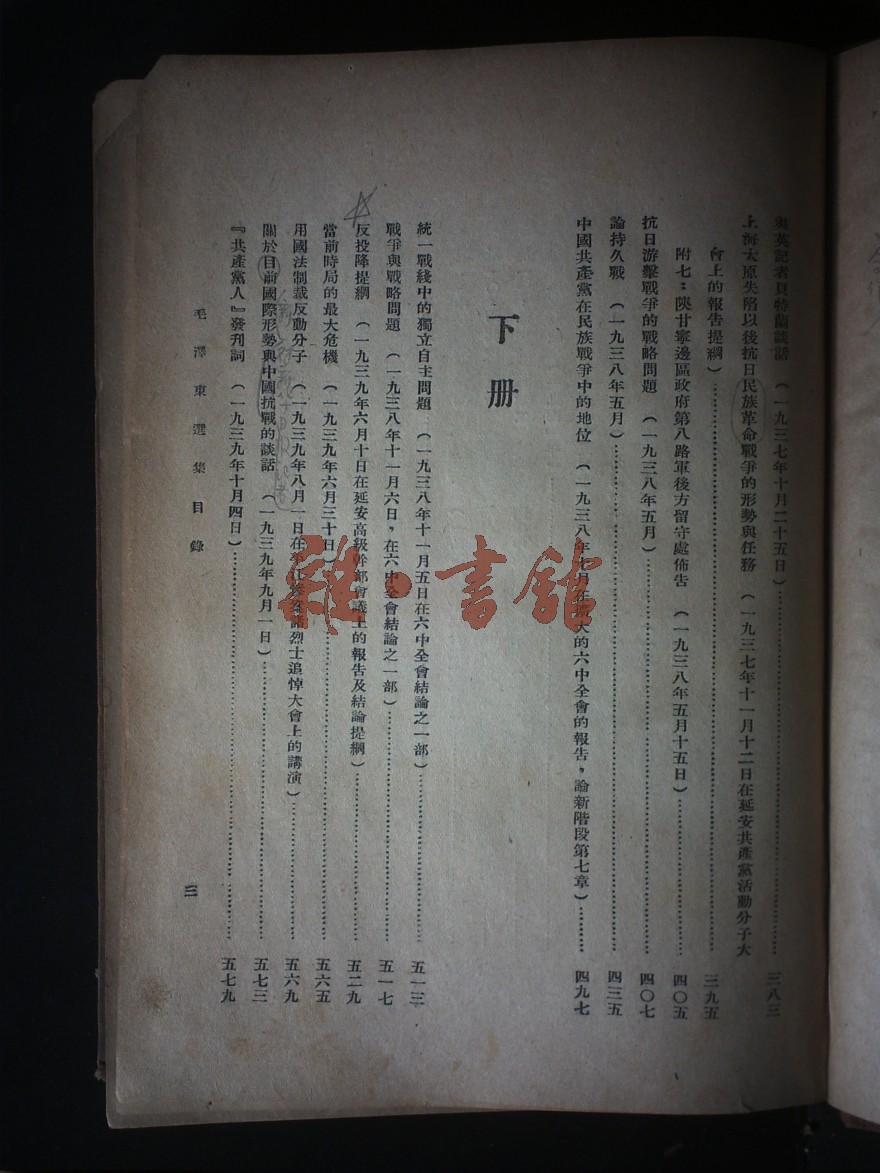 與英記者貝特蘭談話 (一九三七年十月二十五日)…………三八三
上海太原失陷以後抗日民族革命戰爭的形勢與任務 (一九三七年十一月十二日在延安共產黨活動分子大
會上的報告提綱)…………三九五
附七:陝甘寧邊區政府第八路軍後方留守處佈告 (一九三八年五月十五日)…………四〇五
抗日游擊戰爭的戰略問題 (一九三八年五月)…………四〇七
論持久戰 (一九三八年五月)…………四三五
中國共產黨在民族戰爭中的地位 (一九三八年 月在擴大的六中全會的報告,論新階段第七章)…………四九七
下册
統一戰綫中的獨立自主問題 (一九三八年十一月五日在六中全會結論之一部)…………五一三
戰爭與戰略問題 (一九三八年十一月六日,在六中全會結論之一部)…………五一七
反投降提綱 (一九三九年六月十日在延安高級幹部會議上的報告及結論提綱)…………五二九
當前時局的最大危機 (一九三九年六月三十日)…………五六五
用國法制裁反動分子 (一九三九年八月一日在平江慘案諸烈士追悼大會上的講演)…………五六九
關於目前國際形勢與中國抗戰的談話 (一九三九年九月一日)…………五七三
『共產黨人』發刊詞 (一九三九年十月四日)…………五七九
毛澤東選集目錄
三
雜·書館